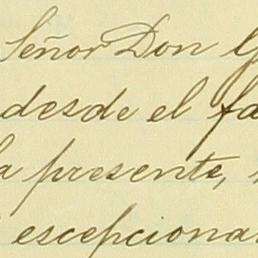 Señor Don G
desde el fa
a presente,
escepciona